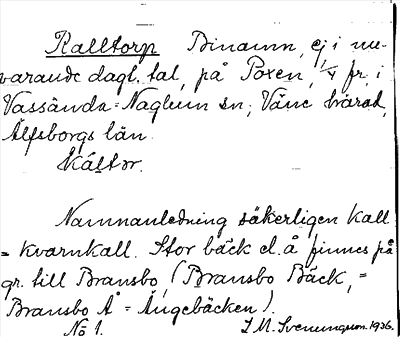 Kalltorp Binamn, ej i nu-
varande dagl. tal, på Poxen, 1/4 fr. i
Vassända-Naglum sn; Väne härad,
Älfsborgs län.
Kåltor.
Namnanledning säkerligen kall
= kvarnkall. Stor bäck el. å finnes på
gr. till Bransbo, (Bransbo Bäck, =
Bransbo Å = Ängebäcken).
No 1. I M. Svenungson. 1936.